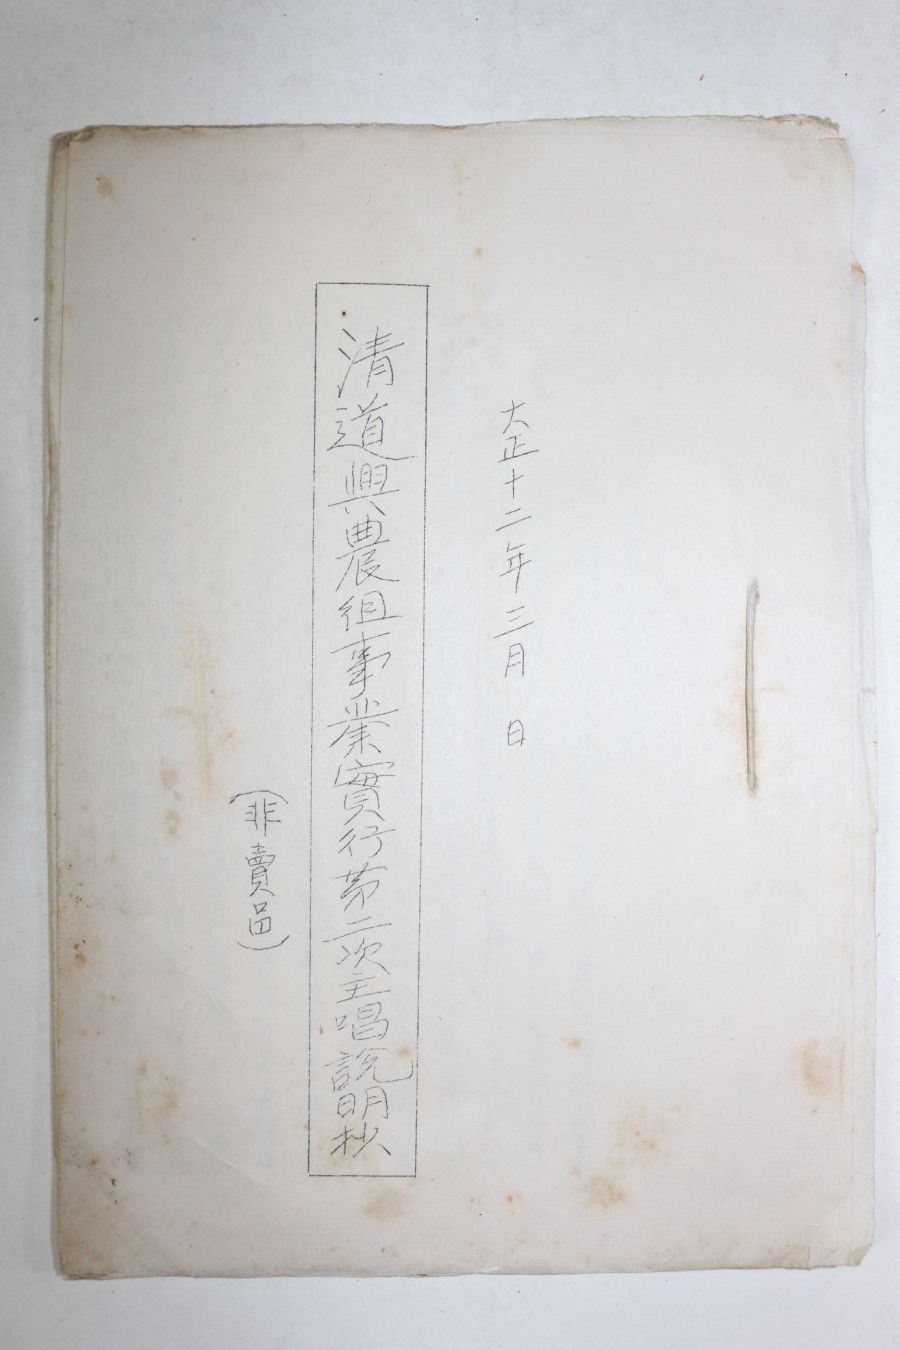 大正十二年三月 日
清道興農組事業實行第二次主唱說明抄
(非賣品)